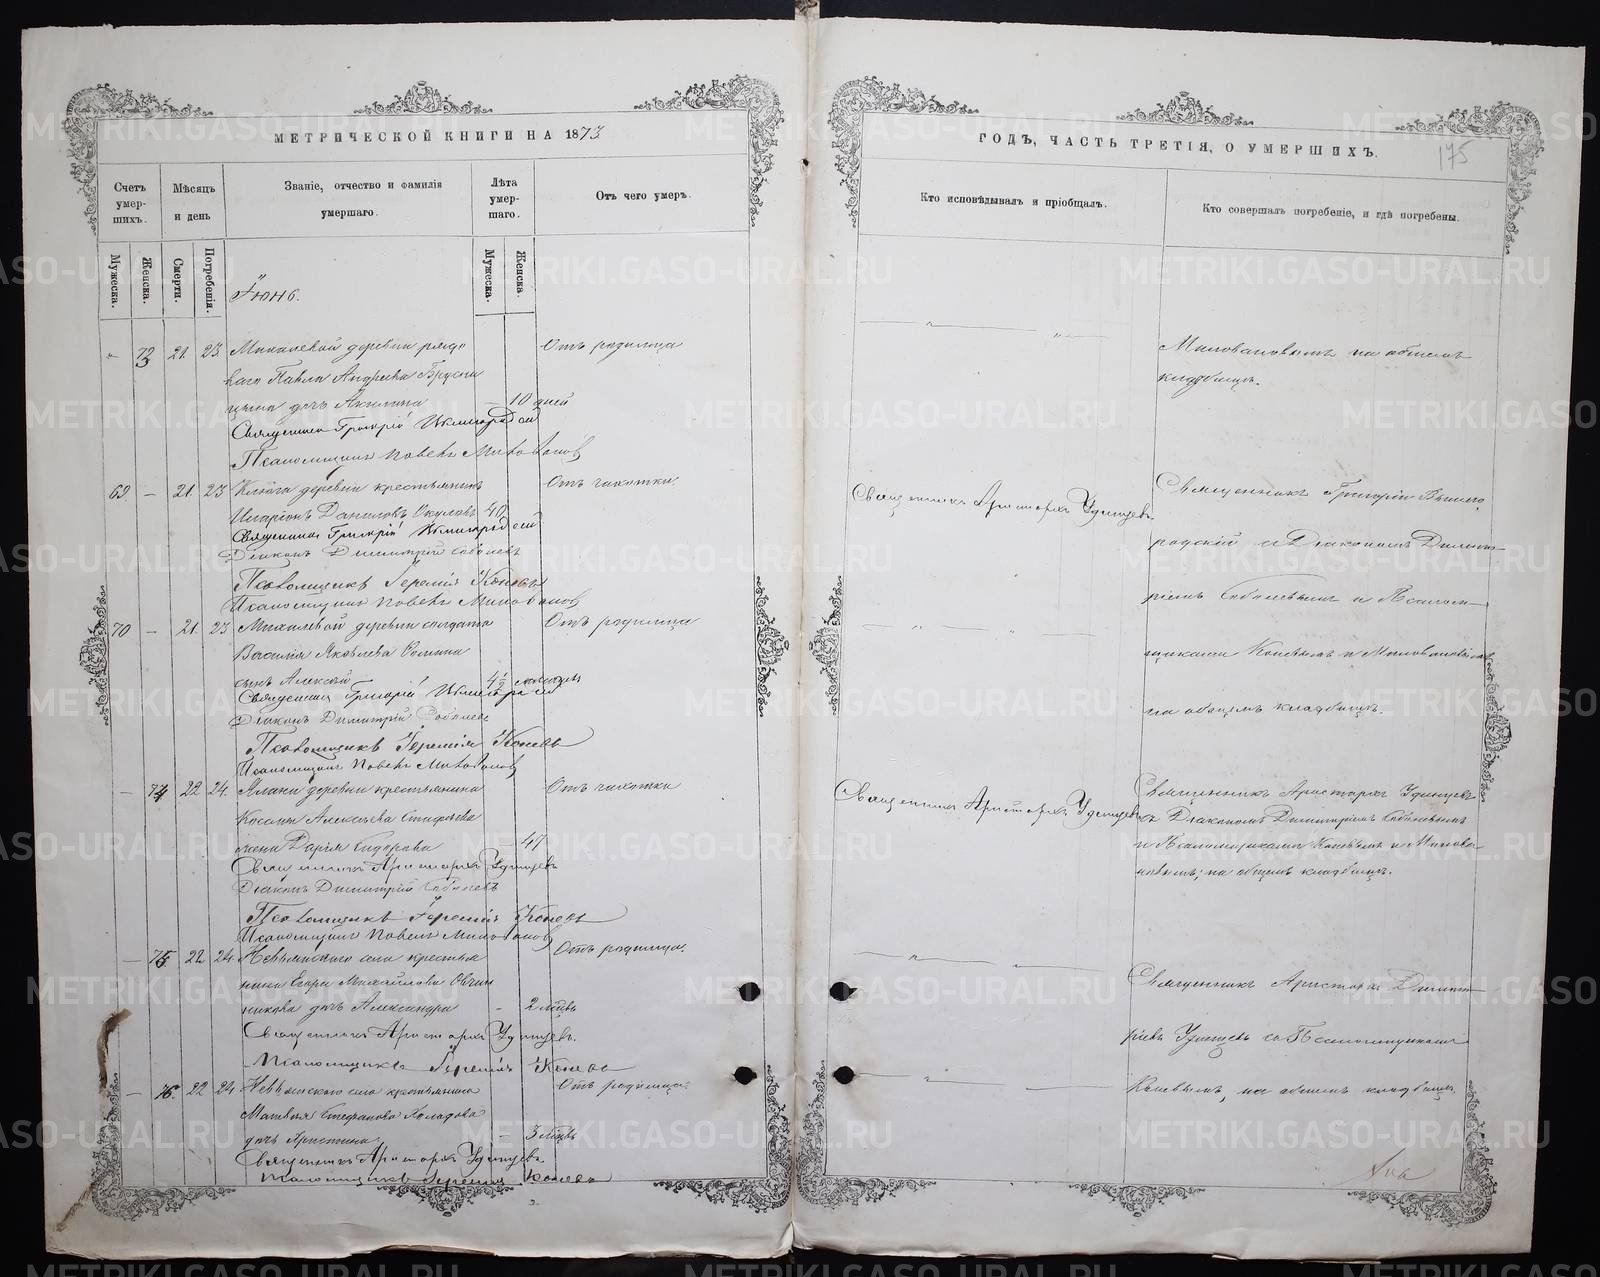 МЕТРИЧЕСКОЙ КНИГИ НА 1873
Счетъ умер-шихъ.
Мѣсяцъ и день
Званіе, отчество и фамилія умершаго.
Лѣта умер-шаго.
Отъ чего умеръ.
Мужеска.
Женска.
Смерти.
Погребенія.
Мужеска.
Женска.
Іюнь.
21. 23. деревни рядо
Отъ родимца
ваго Павла Андреева Брусни
цына дочь Акилина
10 дней
Священникъ Григорій
Псаломщикъ Павелъ Миловановъ
69. — 21. 23 деревни крестьянинъ
Отъ чахотки.
Иларіонъ Даниловъ Окуловъ 40
Священникъ Григорій
Діаконъ Димитрій Соболевъ
Псаломщикъ Іеремія Коневъ
Псаломщикъ Павелъ Миловановъ
70 — 21. 23 Михалевой деревни солдата
Отъ родимца
Василія Яковлева
сынъ Алексѣй
Священникъ Григорій
Діаконъ Димитрій Соболевъ
Псаломщикъ Іеремія Коневъ
Псаломщикъ Павелъ Миловановъ
— 74 22 24. деревни крестьянина
Отъ чахотки
Алексѣева
жена Дарья Сидорова
47
Священникъ Аристархъ Удинцевъ
Діаконъ Димитрій Соболевъ
Псаломщикъ Іеремія Коневъ
Псаломщикъ Павелъ Миловановъ
— 75 22 24. Невьянского села крестья
Отъ родимца.
нина Егора Михайлова Овчин
никова дочь Александра
2 мѣсцъ
Священникъ Аристархъ Удинцевъ.
Псаломщикъ Іеремія Коневъ
— 76. 22 24 Невьянского села крестьянина
Отъ родимца.
Матвѣя Стефанова
дочь Христина
3 мѣсцъ
Священникъ Аристархъ Удинцевъ
Псаломщикъ Іеремія Коневъ
ГОДЪ, ЧАСТЬ ТРЕТІЯ, О УМЕРШИХЪ.
175
Кто исповѣдывалъ и пріобщалъ.
Кто совершалъ погребеніе, и гдѣ погребены.
Миловановымъ на общемъ
кладбищѣ.
Священникъ Аристархъ Удинцевъ
Священникъ Григорій Вышего
родскій и Діакономъ Димит—
ріемъ Соболевымъ и Псалом—
щиками Коневымъ и Миловановымъ
на общемъ кладбищѣ.
Священникъ Аристархъ Удинцевъ
Священникъ Аристархъ Удинцевъ
съ Діакономъ Димитріемъ Соболевымъ
и Псаломщиками Коневымъ и Милова
новымъ; на общемъ кладбищѣ.
Священникъ Аристархъ Димит
ріевъ Удинцевъ съ Псаломщикомъ
Коневымъ, на общемъ кладбищѣ.
METRIKI.GASO-URAL.RU